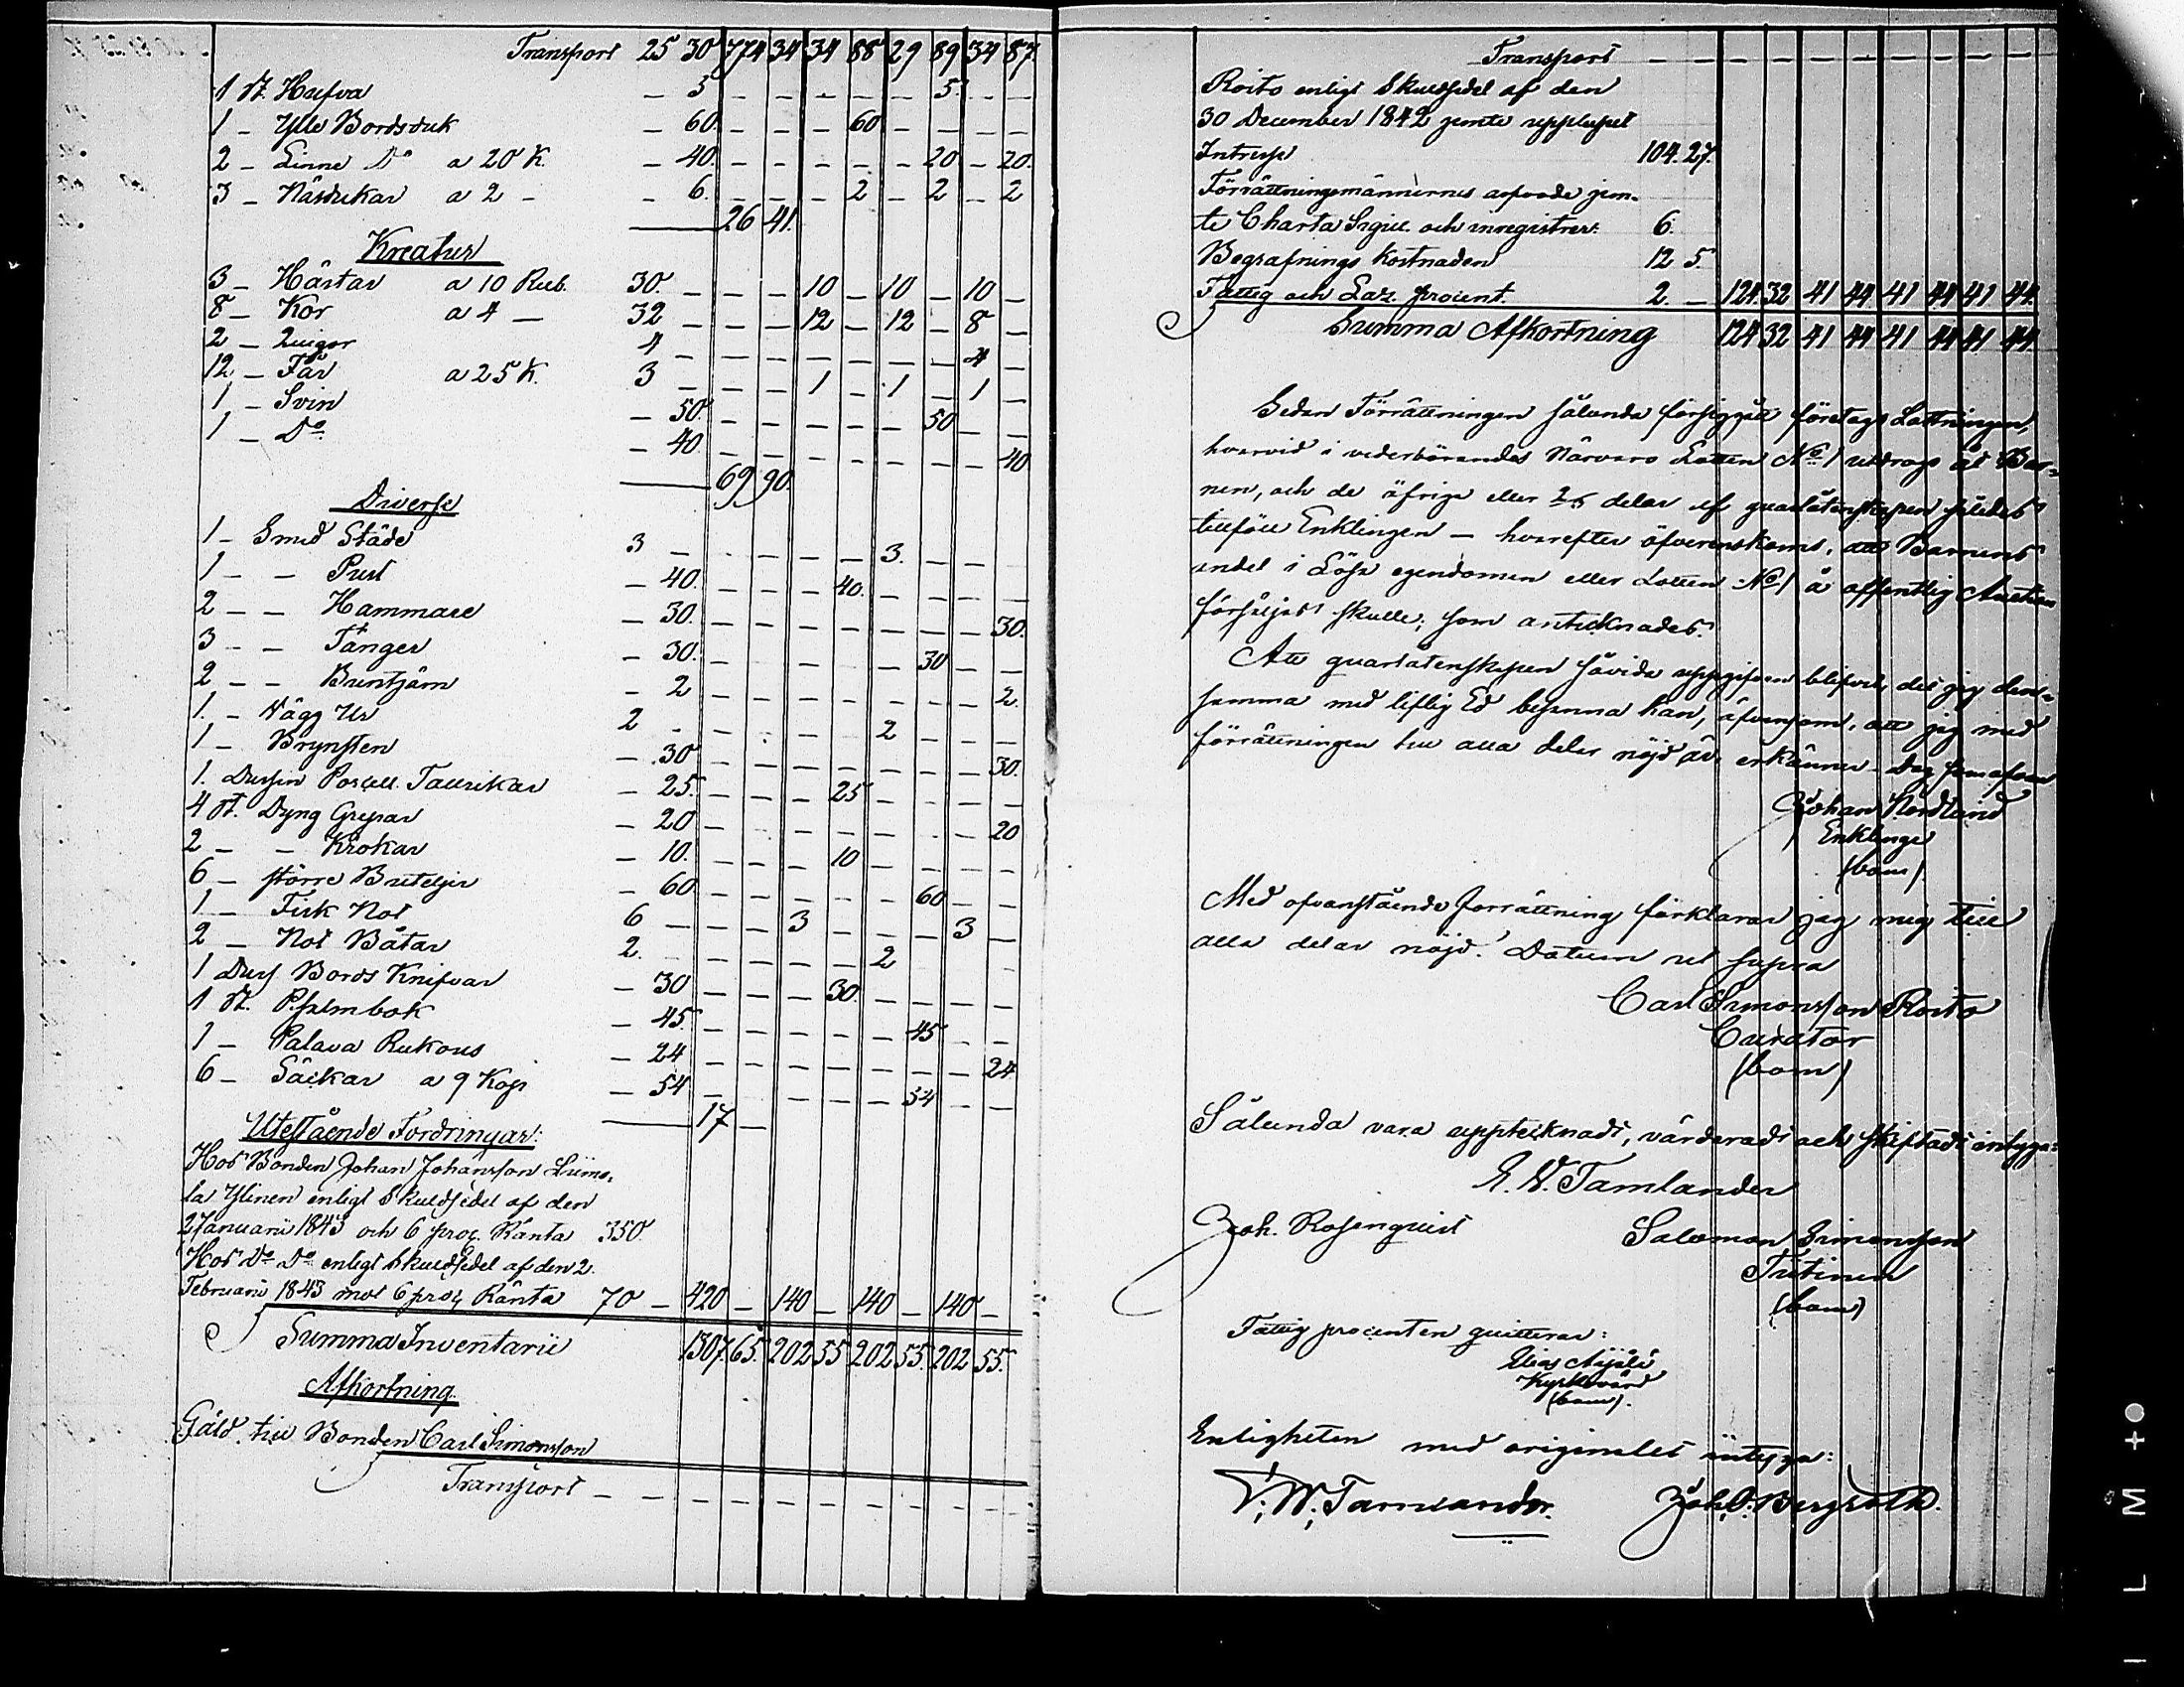 Transport 25 30 774 34 34 88 29 89 34 87
1 st. Hufva — 5 — — — — — 5. — —
1 — Ylle Bordsduk — 60. — — — 60 — — — —
2 — Linne Do a 20 K. — 40. — — — — — 20 — 20.
3 — Näsdukar a 2 — — 6. — — — 2 — 2 — 2
26 41.
Kreatur
3 — Hästar a 10 Rub. 30. — — — 10 — 10 — 10 —
8 — Kor a 4 — 32 — — — 12 — 12 — 8 —
2 — Quigor 4 — — — — — — — 4 —
12 — Får a 25 K. 3 — — — 1 — 1 — 1 —
1 — Svin — 50. — — — — — 50 — —
1 — Do — 40. — — — — — — — 40
69 90.
Diverse
1 — Smed Städe 3 — — — — — 3. — — —
1 — — Pust — 40. — — — 40. — — — —
2 — — Hammare — 30. — — — — — — — 30.
3 — — Tänger — 30. — — — — — 30 — —
2 — — — 2 — — — — — — — 2.
1. — Vägg Ur 2 — — — — — 2 — — —
1 — Brynsten — 30 — — — — — — — 30.
1. Dussin Porcell. Tallrikar — 25. — — — 25 — — — —
4 st. Dyng Grepar — 20 — — — — — — — 20
2 — — Krokar — 10. — — — 10 — — — —
6 — större Buteljer — 60 — — — — — 60 — —
1 — Fisk Not 6 — — — 3 — — — 3 —
2 — Not Båtar 2. — — — — — 2
1 Duss Bords Knifvar — 30 — — — 30. — — — —
1 st. Psalmbok — 45. — — — — — 45 — —
1 — Palava Rukous — 24 — — — — — — — 24
6 — Säckar a 9 Kop — 54 — — — — — 54 — —
17 —
Utestående Fordringar:
Hos Bonden Johan Johansson
la Ylinen enligt Skuldsedel af den
2 Januarii 1843 och 6 proc. Ränta 350.
Hos Do Do enligt Skuldsedel af den 2.
Februarii 1843 mot 6 proc Ränta 70 — 420 — 140 — 140 — 140 —
Summa Inventarii 1307. 65. 202 55 202 55. 202 55.
Afkortning.
Gäld till Bonden Carl Simonsson
Transport — — — — — — — — — —
Transport — — — — — — — — — —
Roito enligt Skuldsedel af den
30 December 1842 jemte upplupet
Intresse 104. 27.
Förrättningsmännernes arfvode jem-
te Charta Sigill. och inregistrer: 6.
Begrafnings kostnaden 12 5.
Fattig och Laz. procent. 2. — 124 32 41 44 41 44 41 44.
Summa Afkortning 124 32 41 44 41 44 41 44.
Sedan Förrättningen sålunda försiggått företogs Lottningen,
hvarvid i vederbörandes Närvaro Lotten No 1 utdrogs åt Bar-
nen, och de öfriga eller 2/3 delar af quarlåtenskapen således
tillföll Enklingen — hvarefter öfverenskoms, att Barnens
andel i Lösa egendomen eller Lotten No 1 å offentlig Auction
försäljas skulle; som antecknades.
Att quarlåtenskapen såvida uppgifven blifvit, det jag den-
samma med liflig Ed besanna kan, äfvensom, att jag med
förrättningen till alla delar nöjd är, erkänner. Dag som ofvan
Johan Nordlund
Enklinge
(bom).
Med ofvanstående förrättning förklarar jag mig till
alla delar nöjd. Datum ut supra
Carl Simonsson Roito
Curator
(bom)
Sålunda vara upptecknadt, värderadt och skiftadt intyga:
E. W. Tamlander
Joh. Rosenquist Salomon Simonsson
(bom)
Fattig procenten quitteras:
Elias
Kyrkovärd
(bom).
Enligheten med originalet intyga:
E. W. Tamlander. Joh. O. Bergroth.